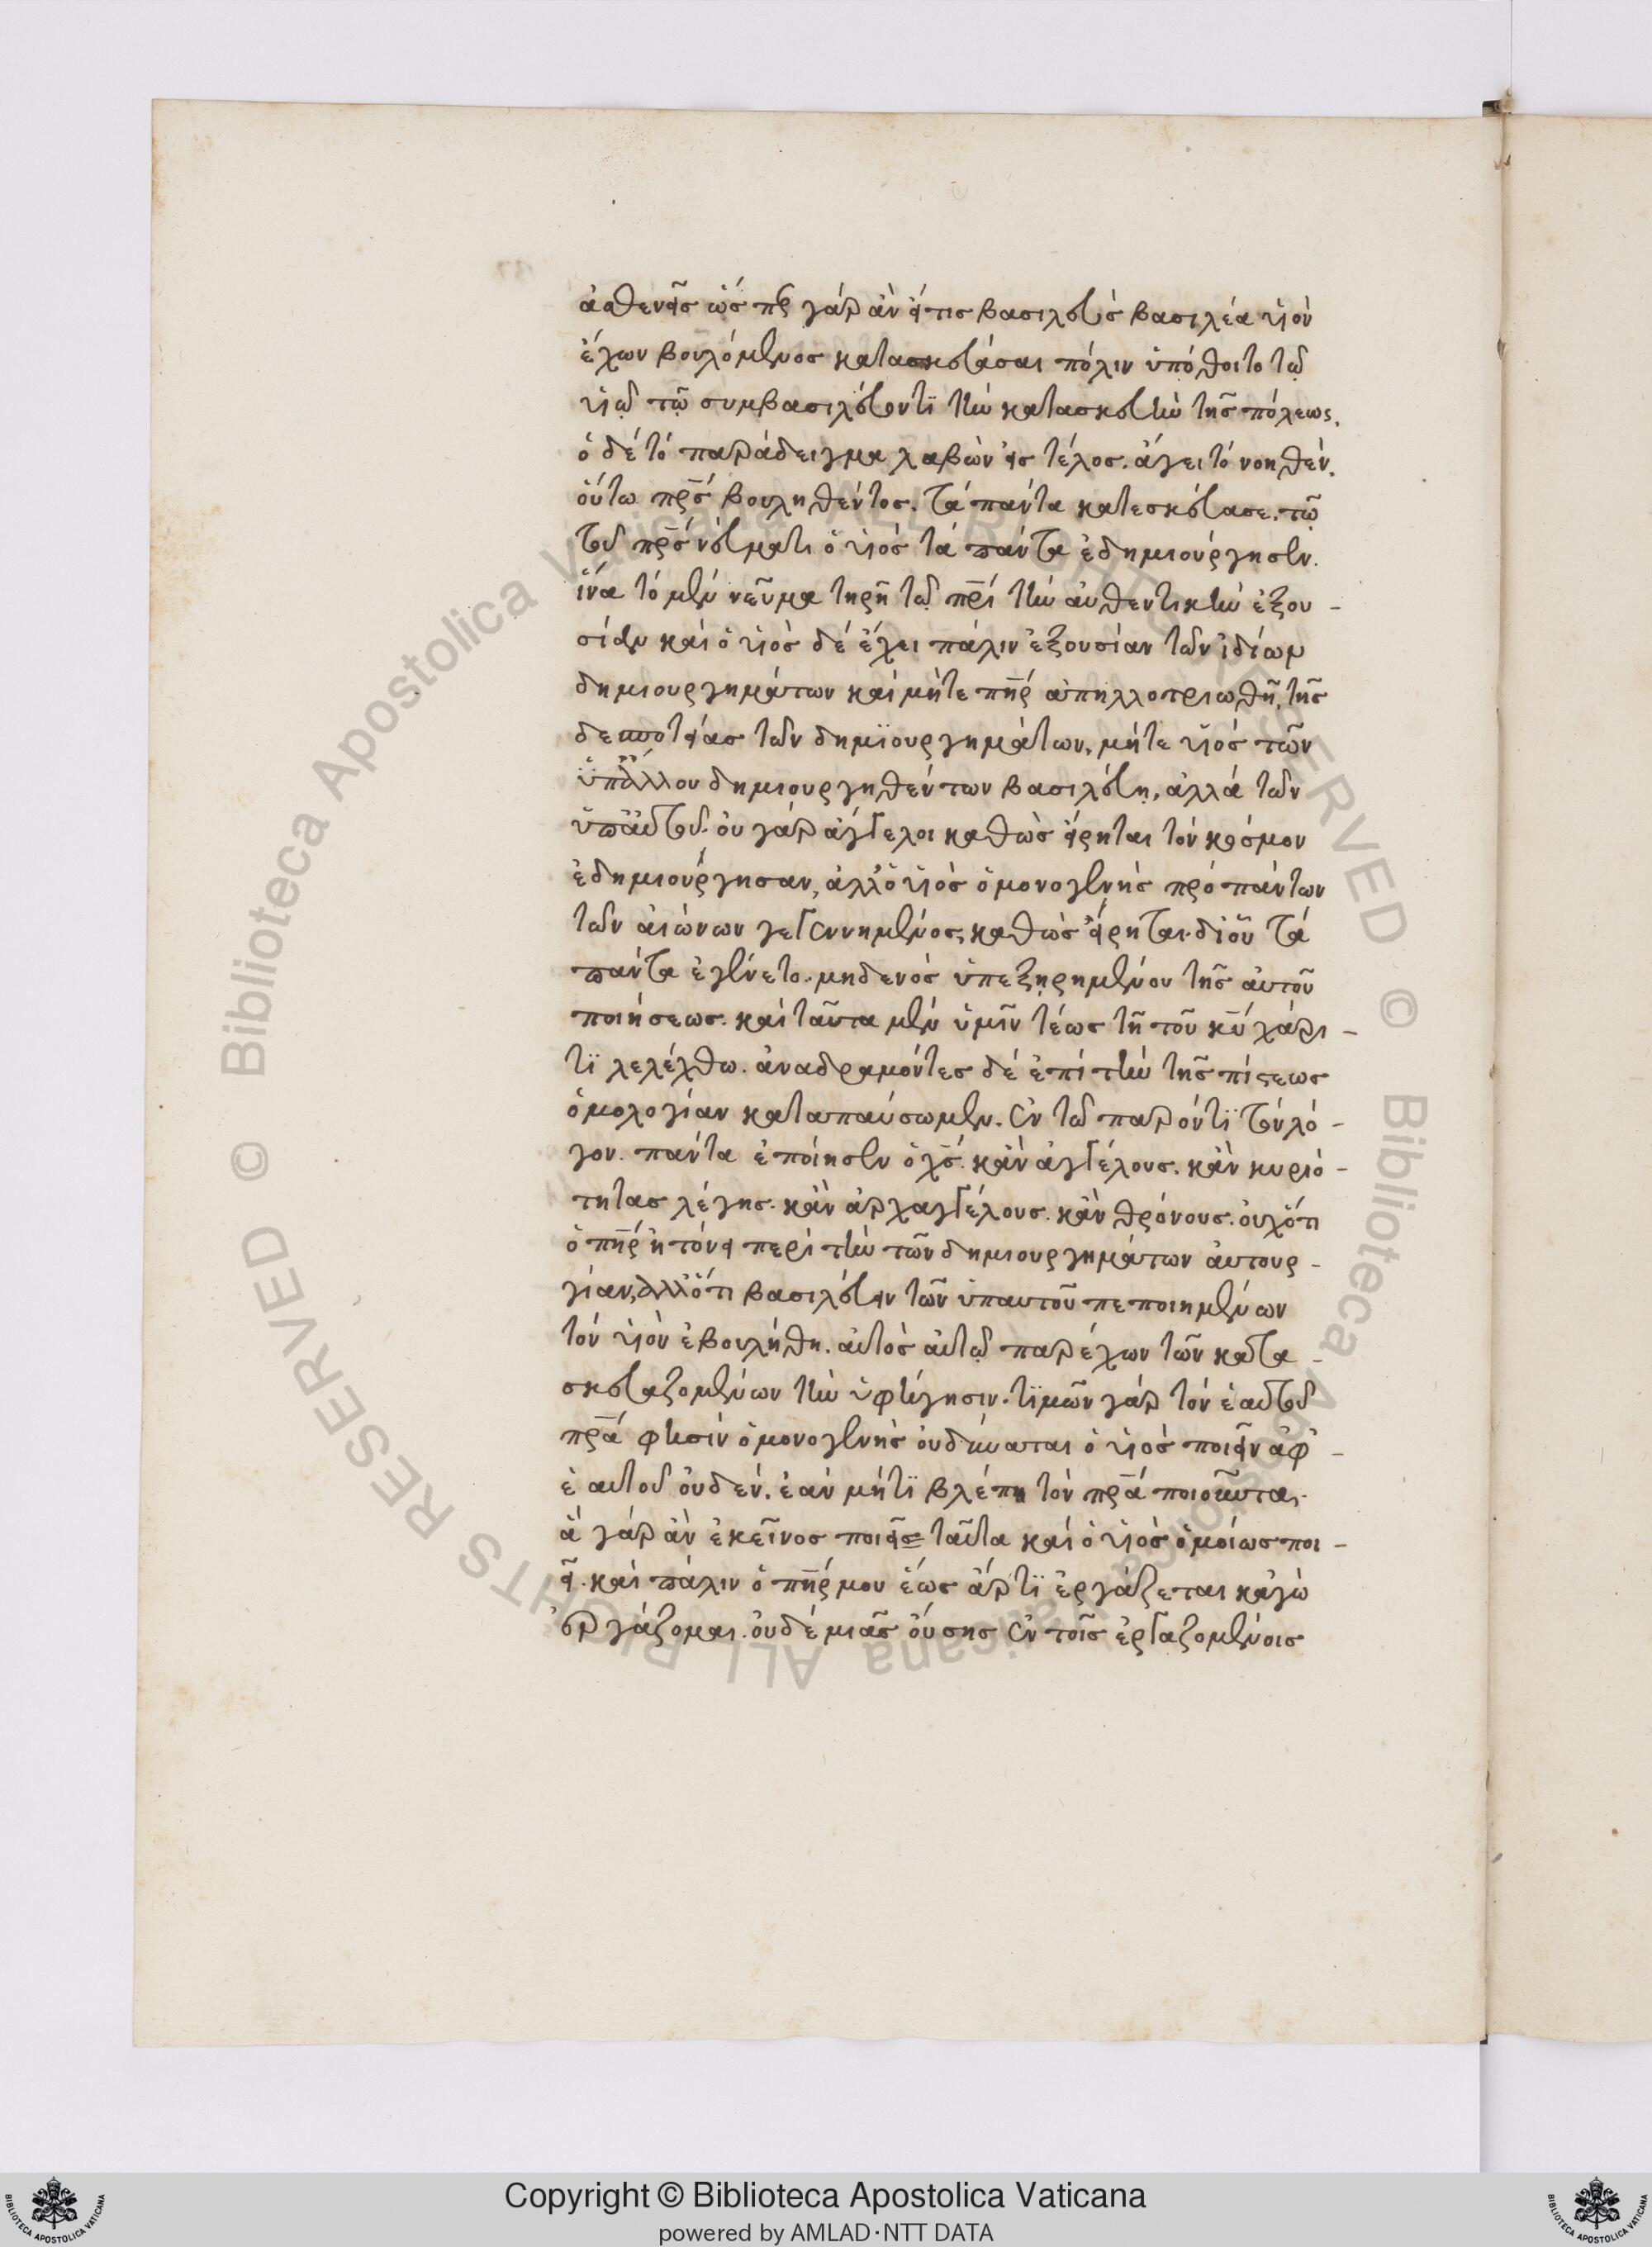 ἀσθενεῖς ὥσπερ γάρ ἄν εἴτις βασιλεὺς βασιλέα υἱὸν
ἔχων βουλόμενος κατασκευάσαι πόλιν ὑπόθοιτο τῷ
υἱῷ τῷ συμβασιλεύοντϊ τὴν κατασκευὴν τῆς πόλεως.
ὁ δέ τό παράδειγμα λαβὼν εἰς τέλος. ἄγει τό νοηθέν.
οὕτω πρς βουληθέντος. τά πάντα κατεσκεύασε. τῷ
τοῦ πρς νεύματι ὁ υἱός τά πάντα ἐδημιούργησεν.
ἵνα τό μέν νεῦμα τηρῆ τῷ πρί τὴν αὐθεντικὴν ἐξου-
σίαν καί ὁ υἱὸς δέ ἔχει πάλιν ἐξουσίαν τῶν ἰδίων
δημιουργημάτων καί μήτε πηρ ἀπηλλοτριωθῆ, τῆς
δεσποτείας τῶν δημϊουργημάτων, μήτε υἱός τῶν
ὑπἄλλου δημιουργηθέντων βασιλεύῃ, ἀλλά τῶν
ὑπαὐτοῦ. οὐ γάρ ἄγγελοι καθὼς εἴρηται τόν κόσμον
ἐδημιούργησαν, ἀλλὁ υἱὸς ὁ μονογενὴς πρό πάντων
τῶν αἰώνων γεγεννημένος, καθὼς εἴρηται. διοῦ τά
πάντα ἐγένετο. μηδενός ὑπεξῃρημένου τῆς αὐτοῦ
ποιήσεως. καί ταῦτα μέν ὑμῖν τέως τῆ τοῦ κυ χάρι-
τϊ λελέχθω. ἀναδραμόντες δέ ἐπί τὴν τῆς πίστεως
ὁμολογίαν καταπαύσωμεν. ἐν τῷ παρόντϊ τόν λό-
γον. πάντα ἐποίησεν ὁ χς. κἂν ἀγγέλους. κἂν κυριό-
τητας λέγης. κἂν ἀρχαγγέλους. κἂν θρόνους. οὐχ ὅτι
ὁ πηρ ἠτόνει περὶ τὴν τῶν δημιουργημάτων αὐτουρ-
γίαν, ἀλλὅτι βασιλεύειν τῶν ὑπαυτοῦ πεποιημένων
τόν υἱὸν ἐβουλήθη. αὐτὸς αὐτῷ παρέχων τῶν κατα-
σκευαζομένων τὴν ὑφήγησιν. τϊμῶν γάρ τόν ἑαυτοῦ
πρα φησίν ὁ μονογενὴς οὐδύναται ὁ υἱὸς ποιεῖν ἀφ-
ἑαυτοῦ οὐδέν. ἐάν μήτϊ βλέπη τὸν πρα ποιοῦντα.
ἅ γάρ ἄν ἐκεῖνος ποιεῖς ταῦτα καί ὁ υἱὸς ὁμοίως ποι-
εῖ. καί πάλιν ὁ πηρ μου ἕως ἄρτϊ ἐργάζεται κἀγὼ
ἐργάζομαι. οὐδέ μιᾶς οὔσης ἐν τοῖς ἐργαζομένοις